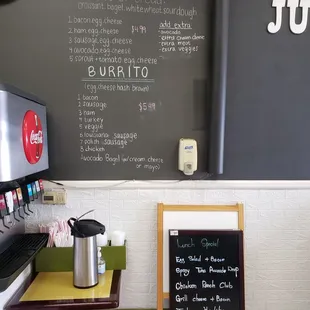 croissant bagel white wheat sourdough
JU
1 bacon egg cheese
2 ham egg cheese $4.99
3 sausage egg cheese
4 avocado egg cheese
5 tomato egg cheese
add extra
-avocado
-extra meat
-extra veggies
BURRITO
(egg cheese hash brown)
1 bacon
2 sausage $5.99
3 ham
4 turkey
5 veggie
6 louisiana sausage
7 polish sausage
8 chicken
Avocado Bagel (w/cream cheese
or mayo)
Coca-Cola
Lunch Special
Egg Salad + Bacon
Spicy Tuna Avocado
Chicken Ranch Club
Grill cheese + Bacon